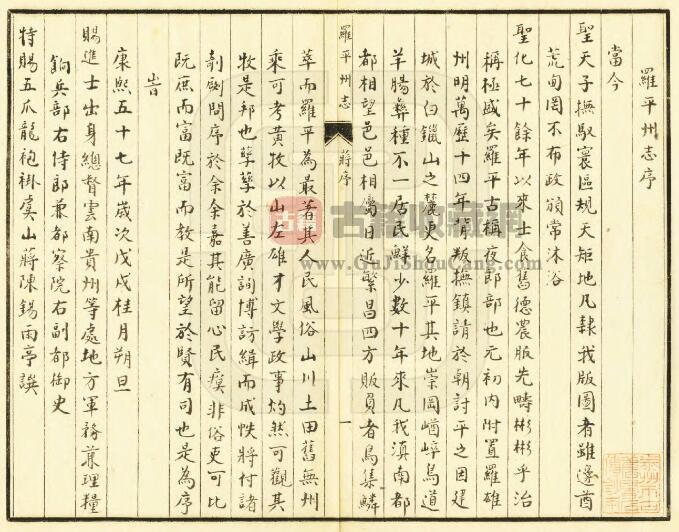 羅平州志序
當今
聖天子撫馭寰區規天矩地凡隸我版圖者雖邊酋
荒甸罔不布政頒常沐浴
聖化七十餘年以來士食舊德農服先疇彬彬乎治
稱極盛矣羅平古稱夜郎部也元初內附置羅雄
州明萬歷十四年背叛撫鎮請於朝討平之因建
城於白鑞山之麓更名羅平其地崇岡崷崪鳥道
羊腸彝種不一居民鮮少數十年來凡我滇南都
都相望邑邑相屬日近繁昌四方販負者鳥集鱗
羅平州志 蔣序 一
萃而羅平為最著其人民風俗山川土田舊無州
乘可考黄牧以山左雄才文學政事灼然可觀其
牧是邦也孳孳於善廣詢博訪緝而成帙將付諸
剞劂問序於余余嘉其能留心民瘼非俗吏可比
既庶而富既富而教是所望於賢有司也是為序
旹
康熙五十七年歲次戊戌桂月朔旦
賜進士出身總督雲南貴州等處地方軍務兼理糧
餉兵部右侍郎兼都察院右副都御史
特賜五爪龍袍褂虞山蔣陳錫雨亭譔
古籍 古籍收藏网
www.GuJiShouCang.com